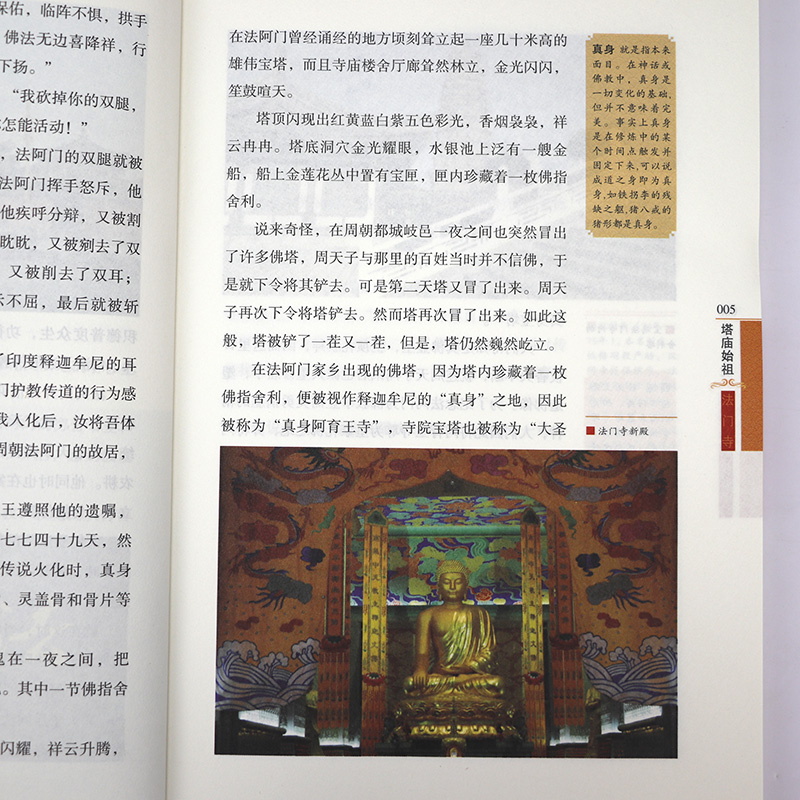 保佑，临阵不惧，拱手
佛法无边喜降祥，行
下扬。”
“我砍掉你的双腿，
怎能活动！”
，法阿门的双腿就被
法阿门挥手怒斥，他
他疾呼分辩，又被割
眈眈，又被剜去了双
又被削去了双耳；
示不屈，最后就被斩
了印度释迦牟尼的耳
门护教传道的行为感
我人化后，汝将吾体
周朝法阿门的故居，
王遵照他的遗嘱，
七七四十九天，然
传说火化时，真身
、灵盖骨和骨片等
在一夜之间，把
。其中一节佛指舍
闪耀，祥云升腾，
在法阿门曾经诵经的地方顷刻耸立起一座几十米高的
雄伟宝塔，而且寺庙楼舍厅廊耸然林立，金光闪闪，
笙鼓喧天。
塔顶闪现出红黄蓝白紫五色彩光，香烟袅袅，祥
云冉冉。塔底洞穴金光耀眼，水银池上泛有一艘金
船，船上金莲花丛中置有宝匣，匣内珍藏着一枚佛指
舍利。
说来奇怪，在周朝都城岐邑一夜之间也突然冒出
了许多佛塔，周天子与那里的百姓当时并不信佛，于
是就下令将其铲去。可是第二天塔又冒了出来。周天
子再次下令将塔铲去。然而塔再次冒了出来。如此这
般，塔被铲了一茬又一茬，但是，塔仍然巍然屹立。
在法阿门家乡出现的佛塔，因为塔内珍藏着一枚
佛指舍利，便被视作释迦牟尼的“真身”之地，因此
被称为“真身阿育王寺”，寺院宝塔也被称为“大圣
真身 就是指本来
面目。在神话或
佛教中，真身是
一切变化的基础，
但并不意味着完
美。事实上真身
是在修炼中的某
个时间点触发并
固定下来，可以说
成道之身即为真
身，如铁拐李的残
缺之躯，猪八戒的
猪形都是真身。
005
塔庙始祖
法门寺
法门寺新殿